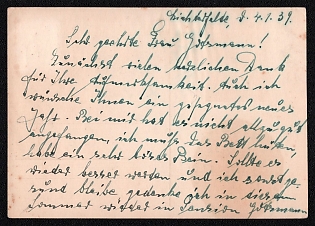 Lichterfelde, d. 4.1.39.
Sehr geehrte Frau Gehrmann!
Zunächst vielen herzlichen Dank
für Ihre Aufmerksamkeit. Auch ich
wünsche Ihnen ein gesegnetes neues
Jahr. Bei mir hat es nicht allzu gut
angefangen, ich muß das Bett hüten,
habe ein sehr böses Bein. Sollte es
wieder besser werden und ich sonst ge-
sund bleibe gedenke ich in diesem
Sommer wieder in Pension